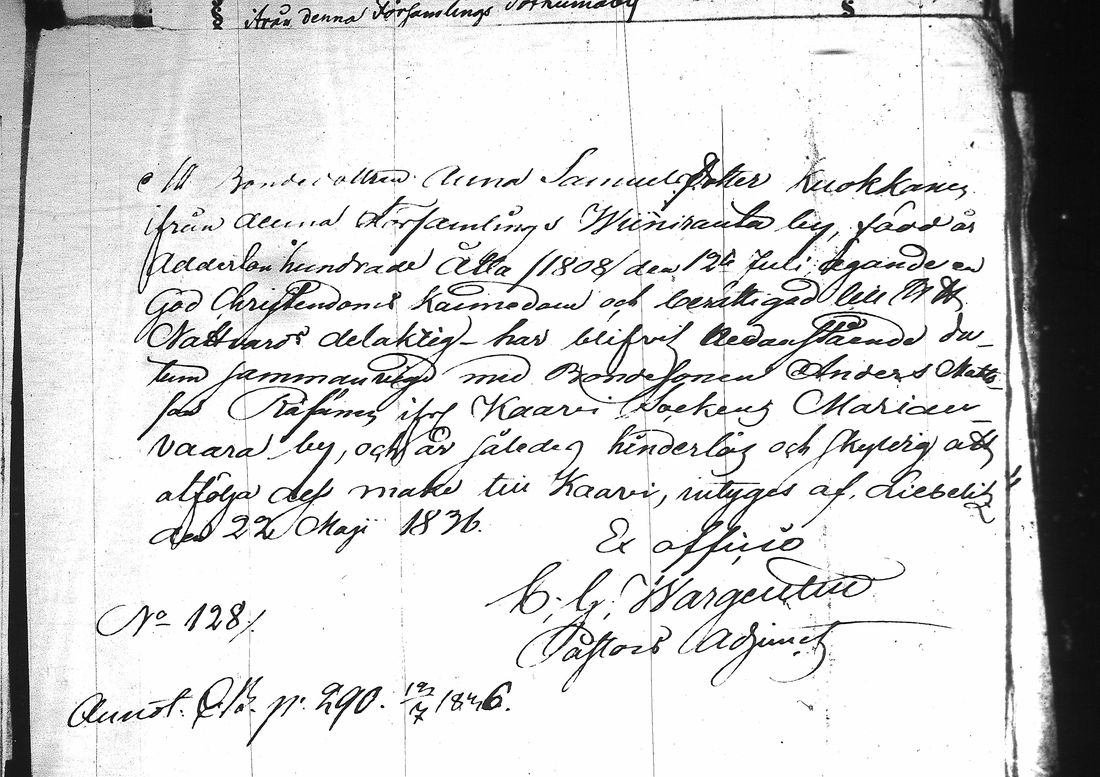 ifrån denna Församlings
Bondedottren Anna Samuels Dotter Kuokkanen
ifrån denna Församlings Wiiniranta by, född år
Adderton hundrade Åtta /1808/ den 12te Juli, ägande en
God Christendoms Kännedom och berättigad till H H
Nattvards delaktig– har blifvit nedanstående da–
tum sammanvigd med Bondesonen Anders Matts–
son Räsänen ifrå Kaavi Sockens Marian–
vaara by, och är således hinderlös och skyldig att
åtfölja dess make till Kaavi, intygas af. Liebelitz
den 22 Maji 1836.
Ex officio
C. G. Wargentin
Pastors Adjunct
No 128/.
Annot. p. 290. 1846.